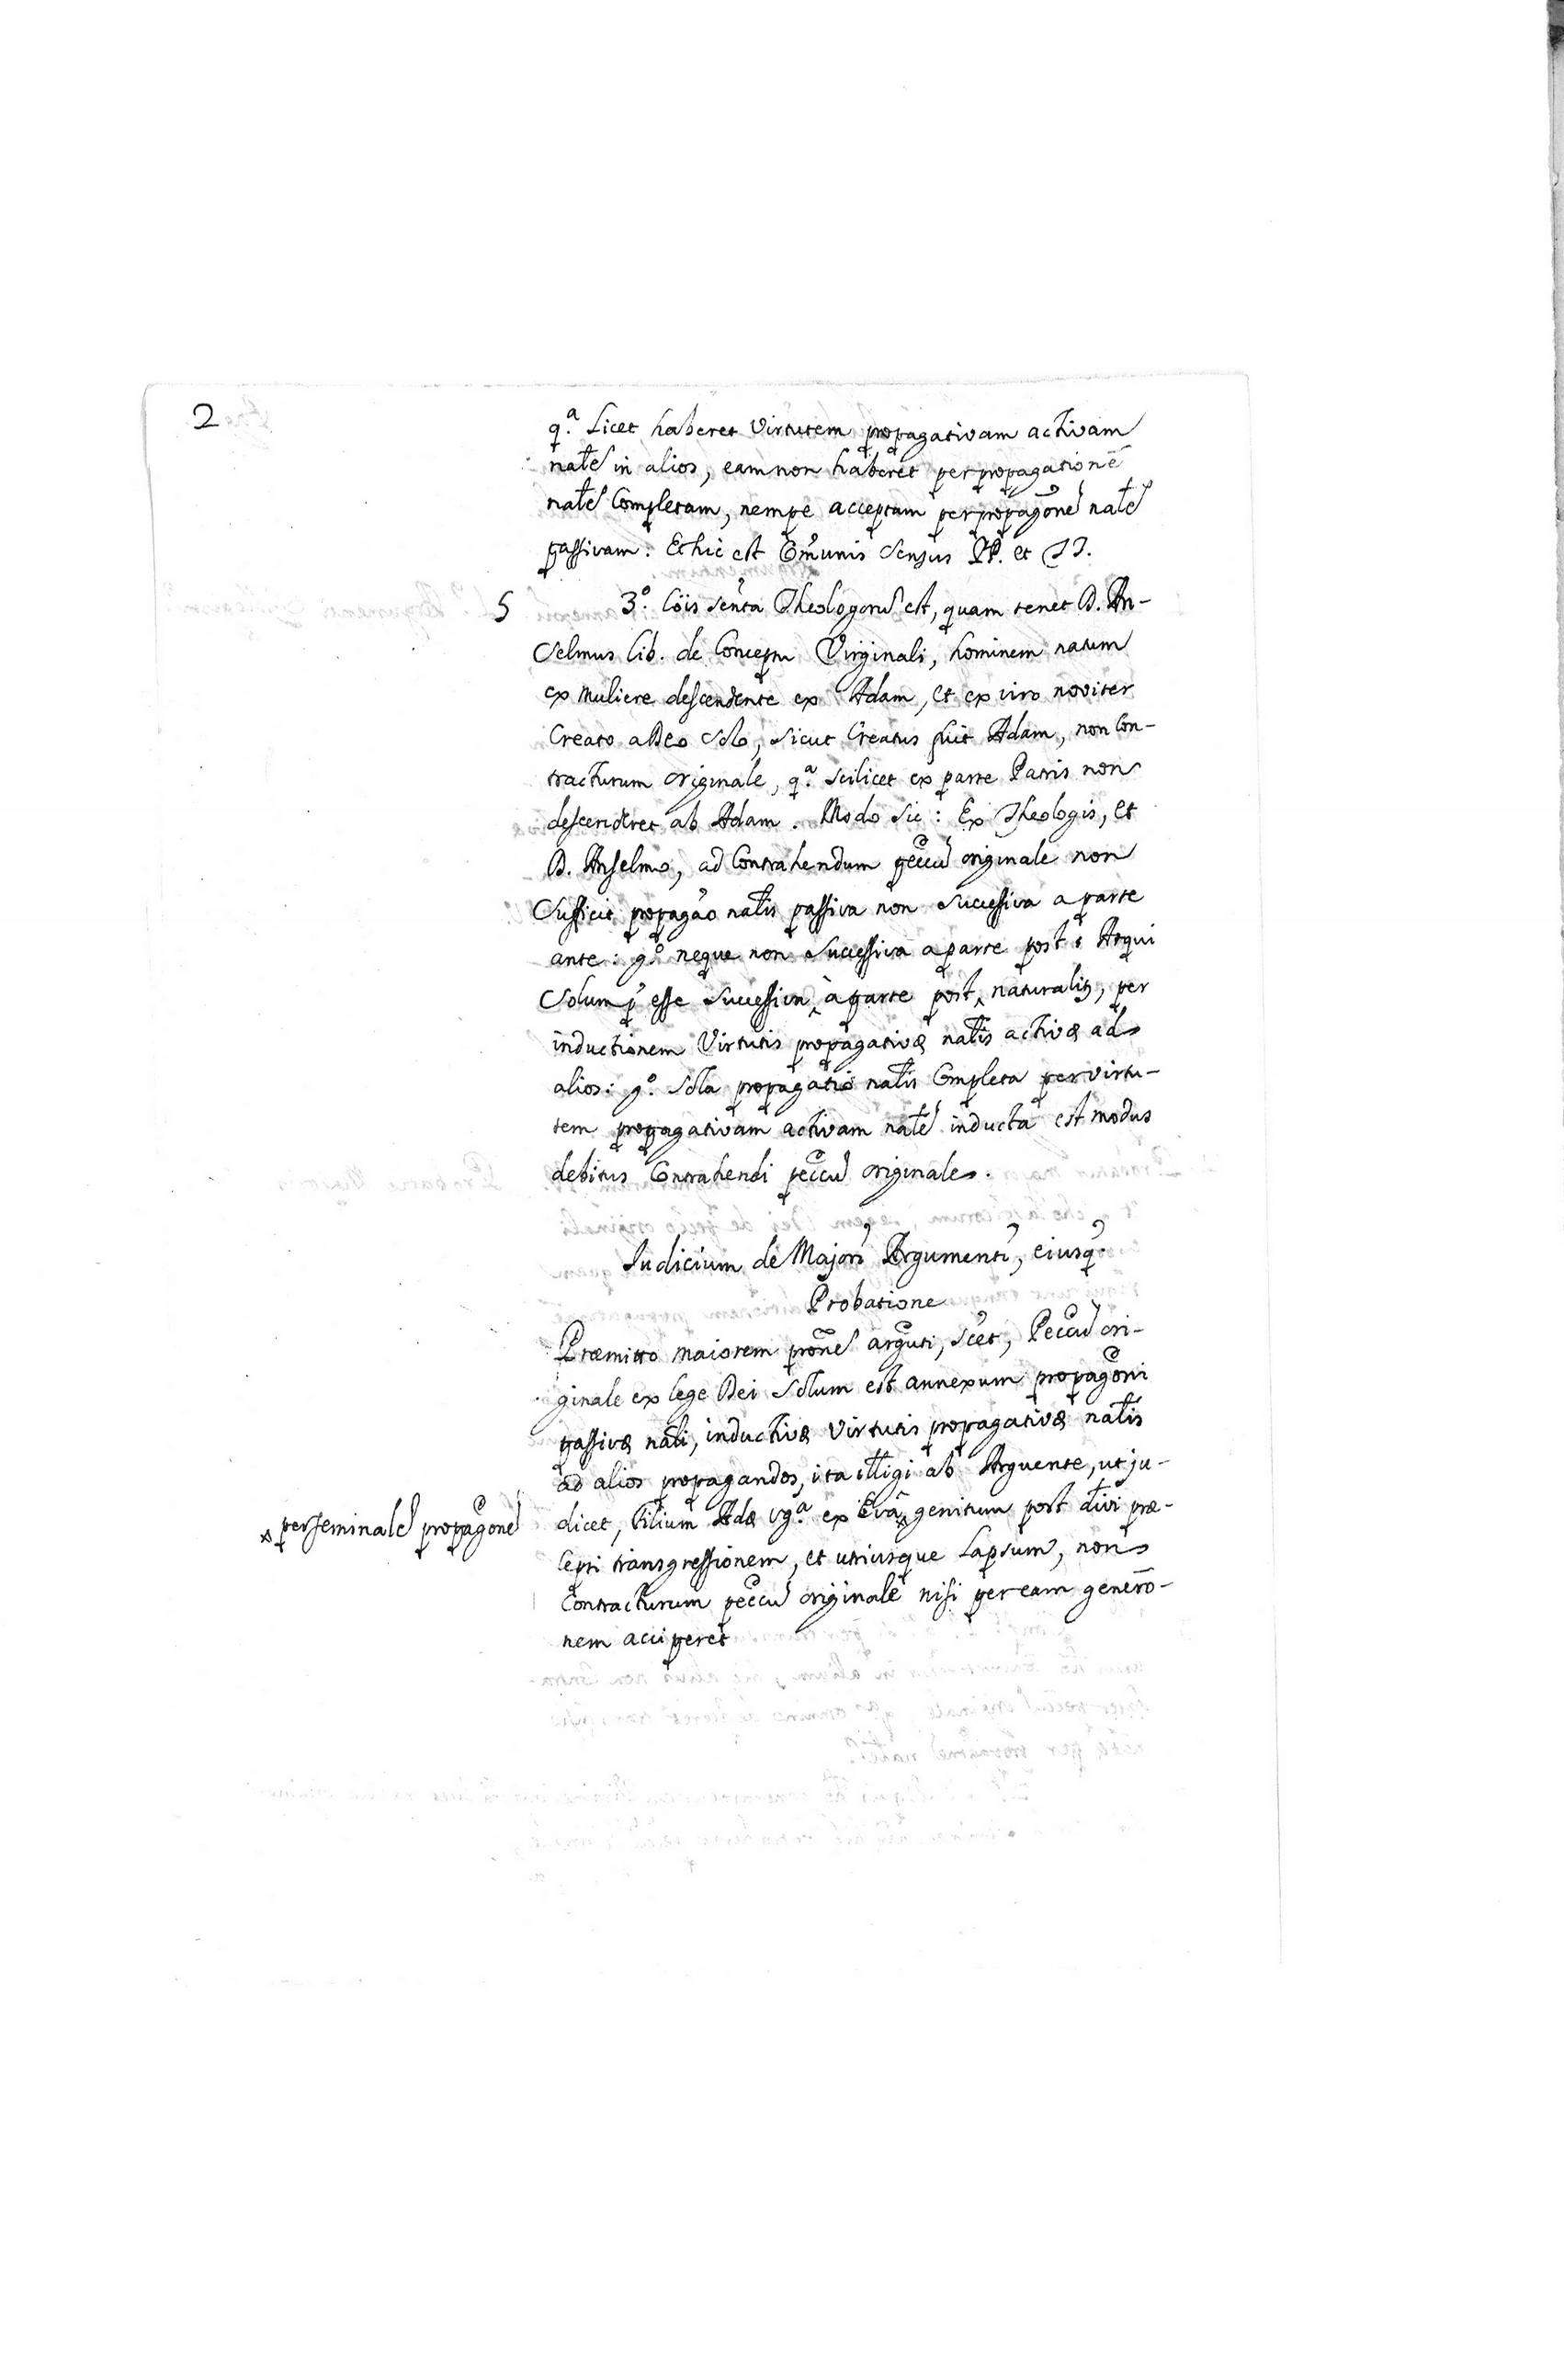 2
q.ª Licet haberet Virtutem propagativam activam
nalē in alios, eam non haberet per propagationē
nalē Completam, nempe acceptam per propagōnē nalē
passivam. Et hic est Cōmunis Sensus PP. et TT.
5
3º. Cōis Senta Theologorū est, quam tenet D. An-
selmus lib. de Conceptu Virginali, hominem natum
ex muliere descendente ex Adam, et ex viro noviter
Creato a Deo Solo, sicut Creatus fuit Adam, non Con-
tracturum originale, q.ª scilicet ex parte Patris non
descenderet ab Adam. Modo sic: Ex Theologis, et
D. Anselmo, ad Contrahendum peccū originale non
Sufficit propagāo nalis passiva non Successiva a parte
ante: gº. neque non Successiva a parte post: Atqui
Solum pʼ esse Successiva à parte post, naturalis, per
inductionem Virtutis propagativæ nalis activæ ad
alios: gº. Sola propagatio nalis Completa per virtu-
tem propagativam activam nalē inducta est modus
debitus Contrahendi peccū originale.
Iudicium de Majori Argumenti, eiusq.
Probatione
Præmitto maiorem prōnē arguti, scet, Peccū ori-
ginale ex lege Dei Solum est annexum propagōni
passivæ nali, inductivæ Virtutis propagativæ nalis
ad alios propagandos, ita itlligi ab Arguente, ut ju-
dicet, Filium Adæ vg.ª ex Evâ genitum post divi præ-
* per seminalē propagonē
cepti transgressionem, et utriusque Lapsum, non
Contracturum peccū originale nisi per eam generō-
nem acciperet